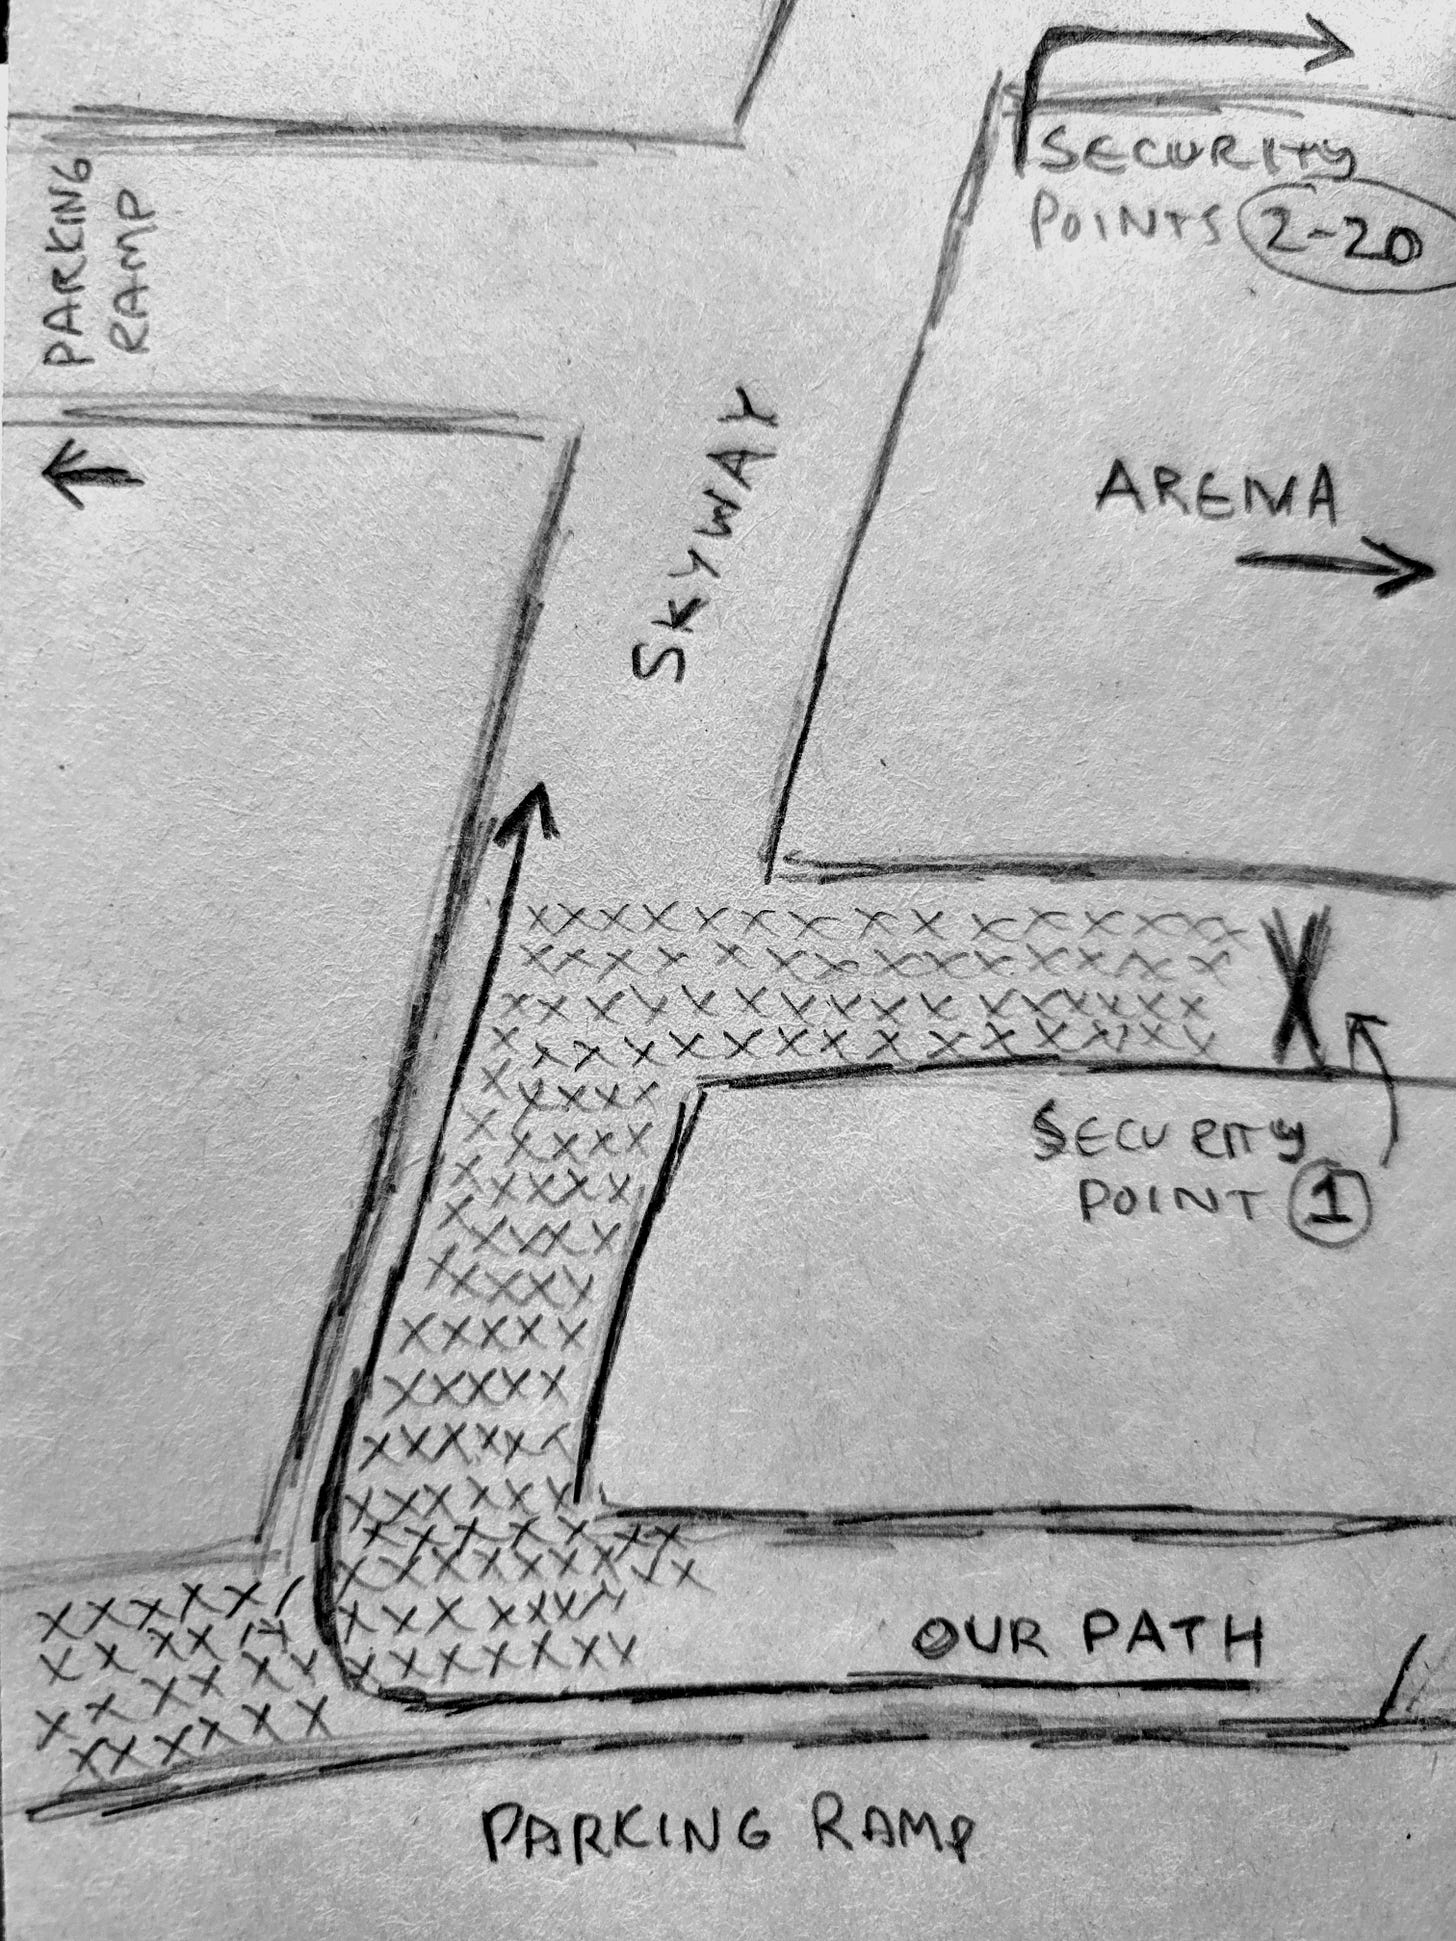 SECURITY
POINTS 2-20
PARKING
RAMP
SKYWAY
ARENA
SECURITY
POINT 1
OUR PATH
PARKING RAMP